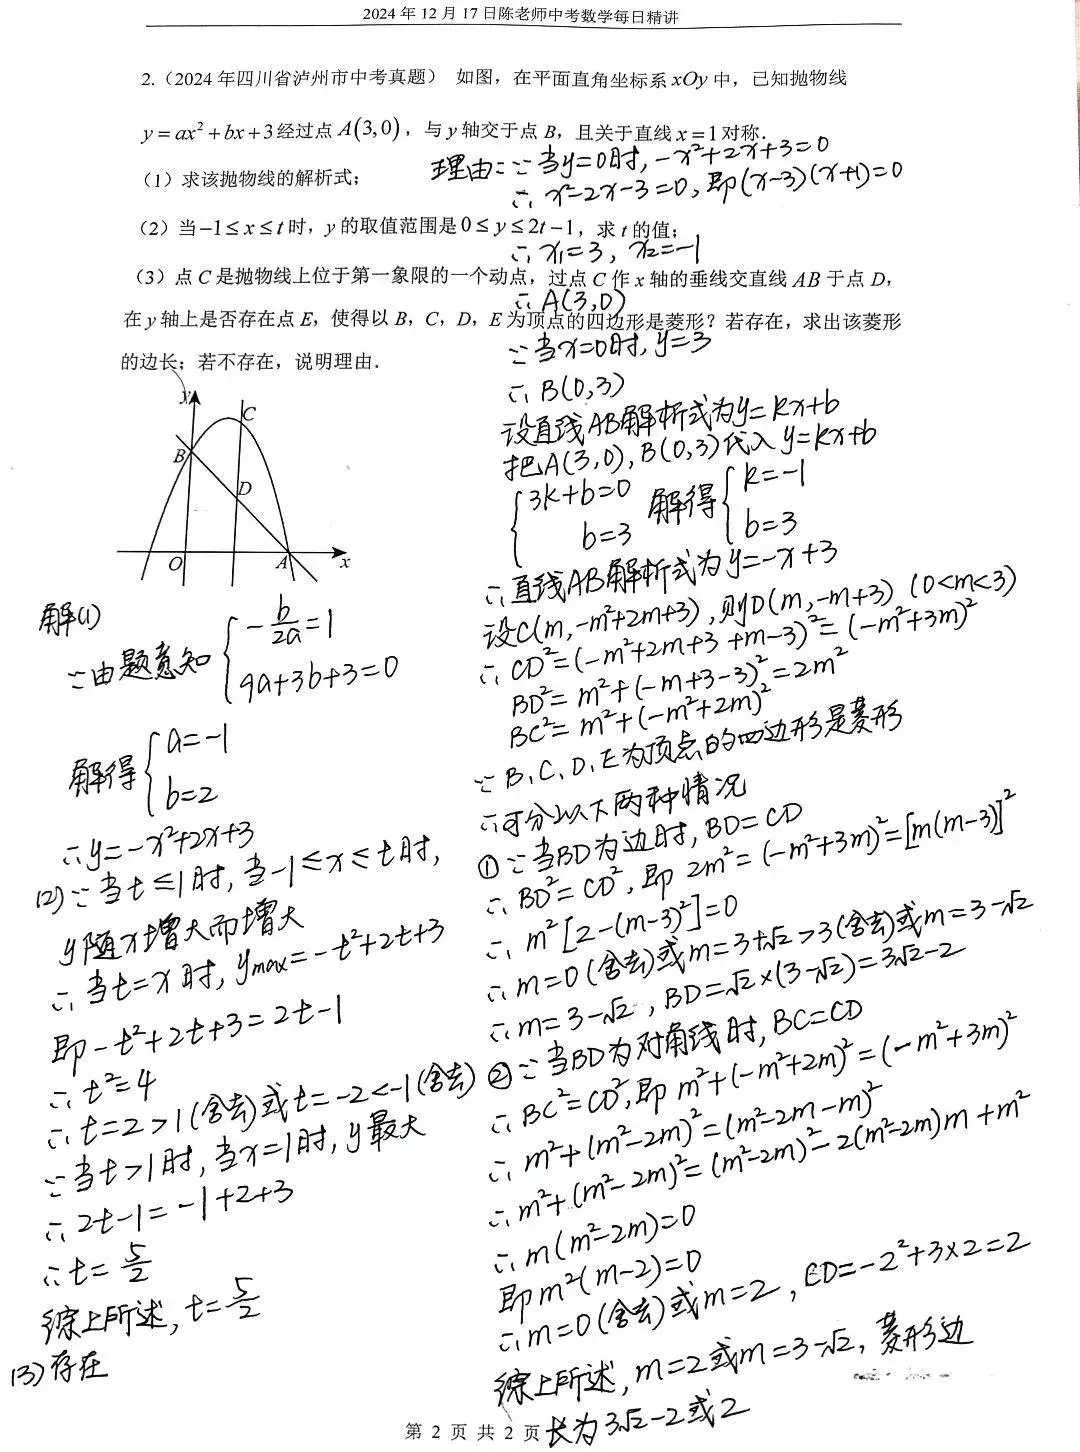 2024 年 12 月 17 日陈老师中考数学每日精讲
2.（2024 年四川省泸州市中考真题） 如图，在平面直角坐标系 xOy 中，已知抛物线
y = ax² + bx + 3 经过点 A(3,0)，与 y 轴交于点 B，且关于直线 x = 1 对称．
（1）求该抛物线的解析式；
（2）当 −1 ≤ x ≤ t 时，y 的取值范围是 0 ≤ y ≤ 2t − 1，求 t 的值；
（3）点 C 是抛物线上位于第一象限的一个动点，过点 C 作 x 轴的垂线交直线 AB 于点 D，
在 y 轴上是否存在点 E，使得以 B，C，D，E 为顶点的四边形是菱形？若存在，求出该菱形
的边长；若不存在，说明理由．
y
C
B
D
O
A
x
解(1)
∵由题意知 { -b/2a=1
9a+3b+3=0
解得 { a=-1
b=2
∴y=-x²+2x+3
(2)∵当t≤1时,当-1≤x≤t时,
y随x增大而增大
∴当t=x时, ymax=-t²+2t+3
即-t²+2t+3=2t-1
∴t²=4
∴t=2>1(舍去)或t=-2<-1(舍去)
∵当t>1时,当x=1时,y最大
∴2t-1=-1+2+3
∴t=5/2
综上所述, t=5/2
(3)存在
理由:∵当y=0时,-x²+2x+3=0
∴x²-2x-3=0,即(x-3)(x+1)=0
∴x₁=3, x₂=-1
∴A(3,0)
∵当x=0时,y=3
∴B(0,3)
设直线AB解析式为y=kx+b
把A(3,0),B(0,3)代入y=kx+b
{ 3k+b=0
b=3
解得 { k=-1
b=3
∴直线AB解析式为y=-x+3
设C(m,-m²+2m+3),则D(m,-m+3) (0<m<3)
∴CD²=(-m²+2m+3+m-3)²=(-m²+3m)²
BD²=m²+(-m+3-3)²=2m²
BC²=m²+(-m²+2m)²
∵B、C、D、E为顶点的四边形是菱形
∴可分以下两种情况
①∵当BD为边时,BD=CD
∴BD²=CD²,即2m²=(-m²+3m)²=[m(m-3)]²
∴m²[2-(m-3)²]=0
∴m=0(舍去)或m=3+√2>3(舍去)或m=3-√2
∴m=3-√2, BD=√2×(3-√2)=3√2-2
②∵当BD为对角线时,BC=CD
∴BC²=CD²,即m²+(-m²+2m)²=(-m²+3m)²
∴m²+(m²-2m)²=(m²-2m-m)²
∴m²+(m²-2m)²=(m²-2m)²-2(m²-2m)m+m²
∴m(m²-2m)=0
即m²(m-2)=0
∴m=0(舍去)或m=2, CD=-2²+3×2=2
综上所述,m=2或m=3-√2,菱形边
长为3√2-2或2
第 2 页 共 2 页